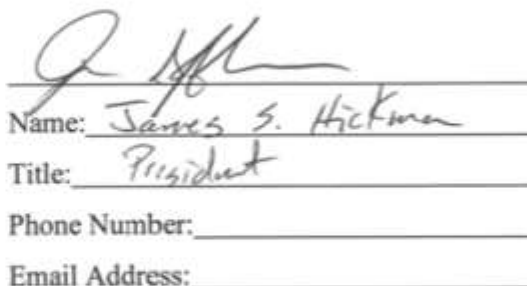 Name: James S. Hickman
Title: President
Phone Number:
Email Address: